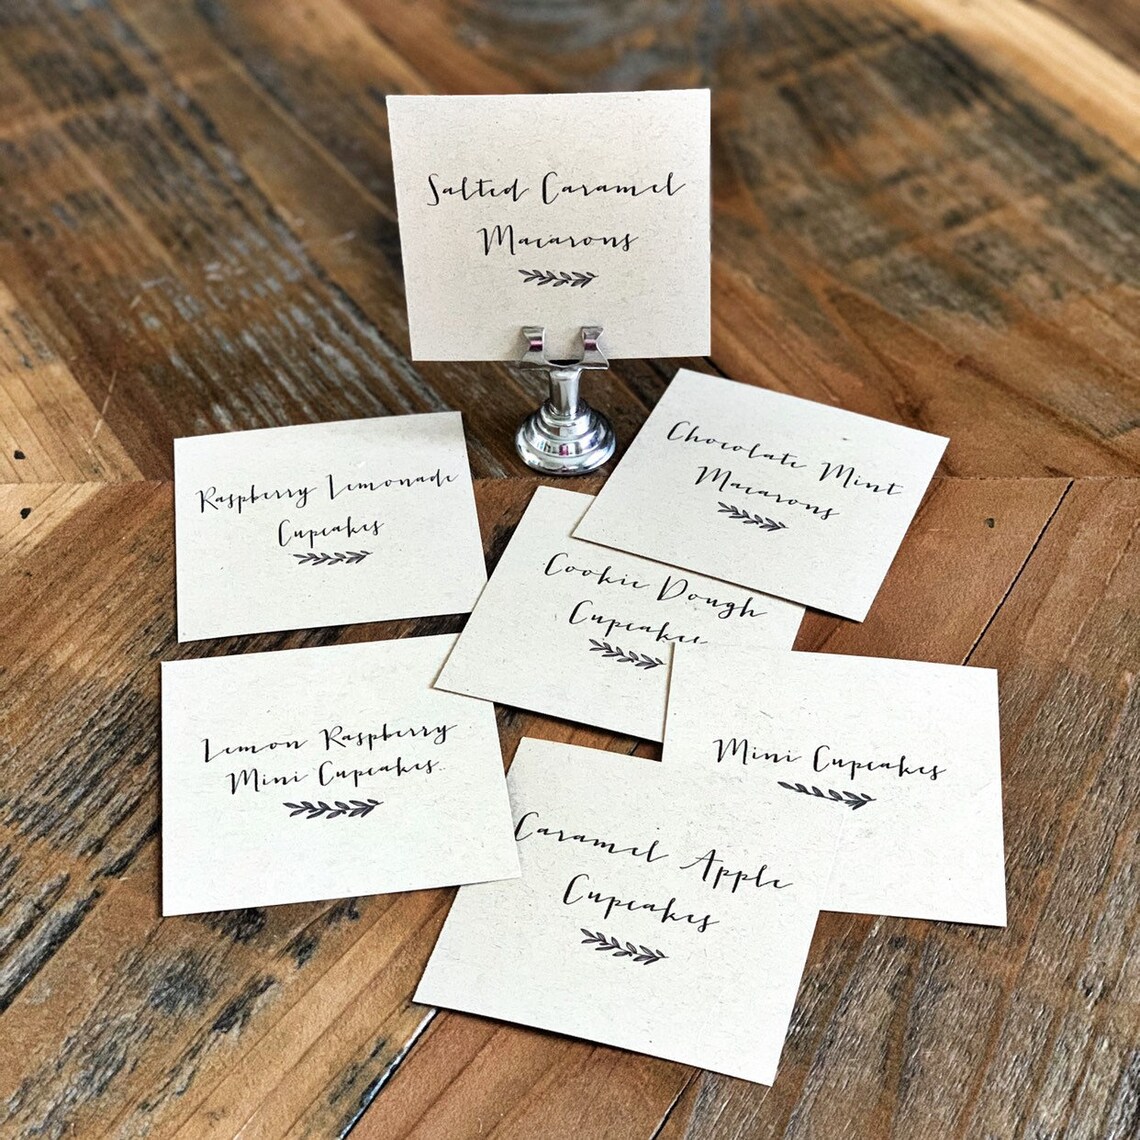 Salted Caramel
Macarons
Raspberry Lemonade
Cupcakes
Chocolate Mint
Macarons
Cookie Dough
Cupcakes
Lemon Raspberry
Mini Cupcakes
Mini Cupcakes
Caramel Apple
Cupcakes